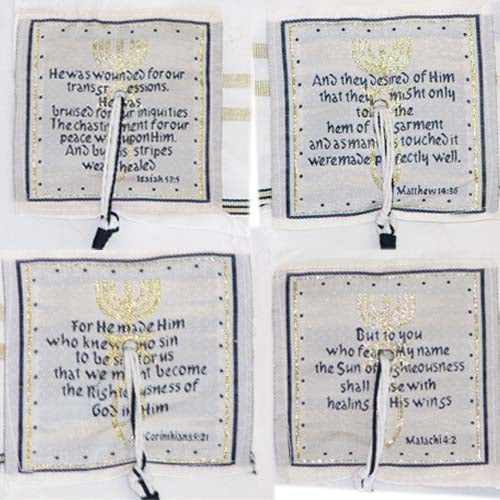 He was wounded for our
transgressions.
He was
bruised for our iniquities
The chastisement for our
peace was upon Him.
And by His stripes
we are healed
Isaiah 53:5
And they desired of Him
that they might only
touch the
hem of garment
and as many as touched it
were made perfectly well.
Matthew 14:36
For He made Him
who knew no sin
to be sin for us
that we might become
the Righteousness of
God in Him
Corinthians 5:21
But to you
who fear My name
the Sun of righteousness
shall rise with
healing in His wings
Malachi 4:2